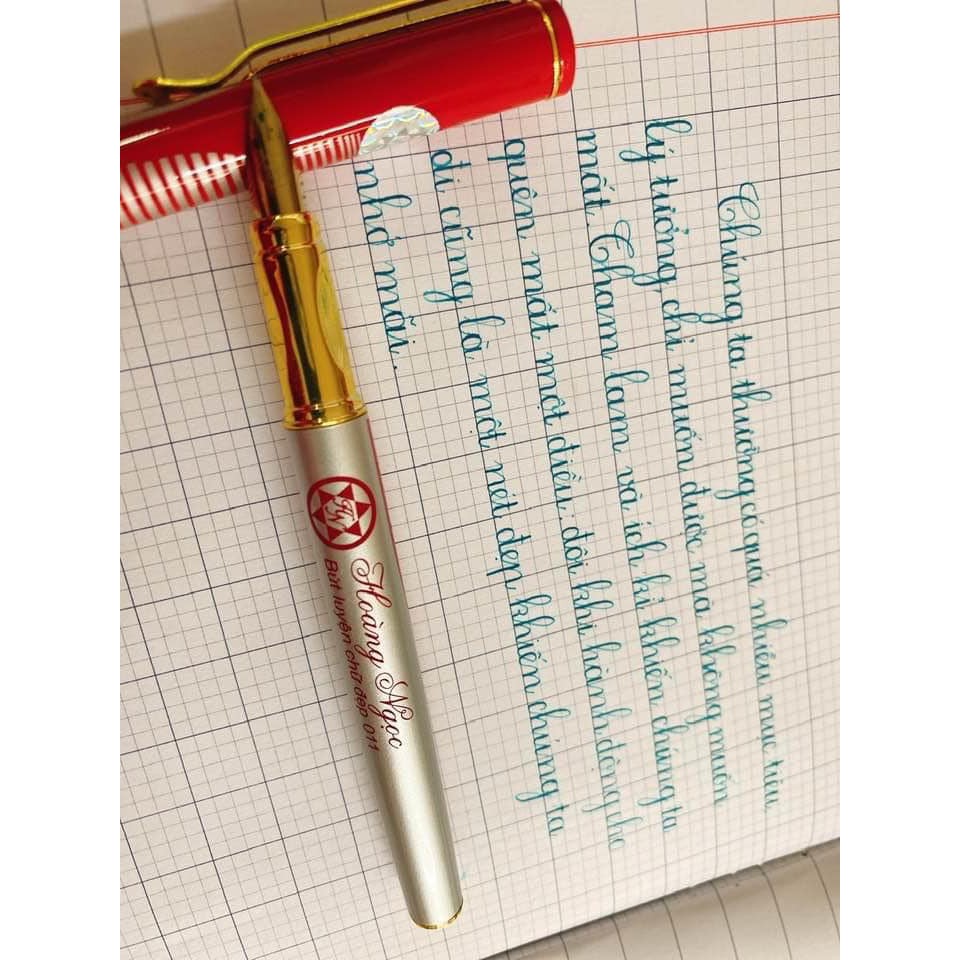 Chúng ta thường có quá nhiều mục tiêu
lý tưởng chỉ muốn được mà không muốn
mất. Tham lam và ích kỉ khiến chúng ta
quên mất một điều: đôi khi hành động cho
đi cũng là một nét đẹp khiến chúng ta
nhớ mãi.
HN
Hoàng Ngọc
Bút luyện chữ đẹp 011